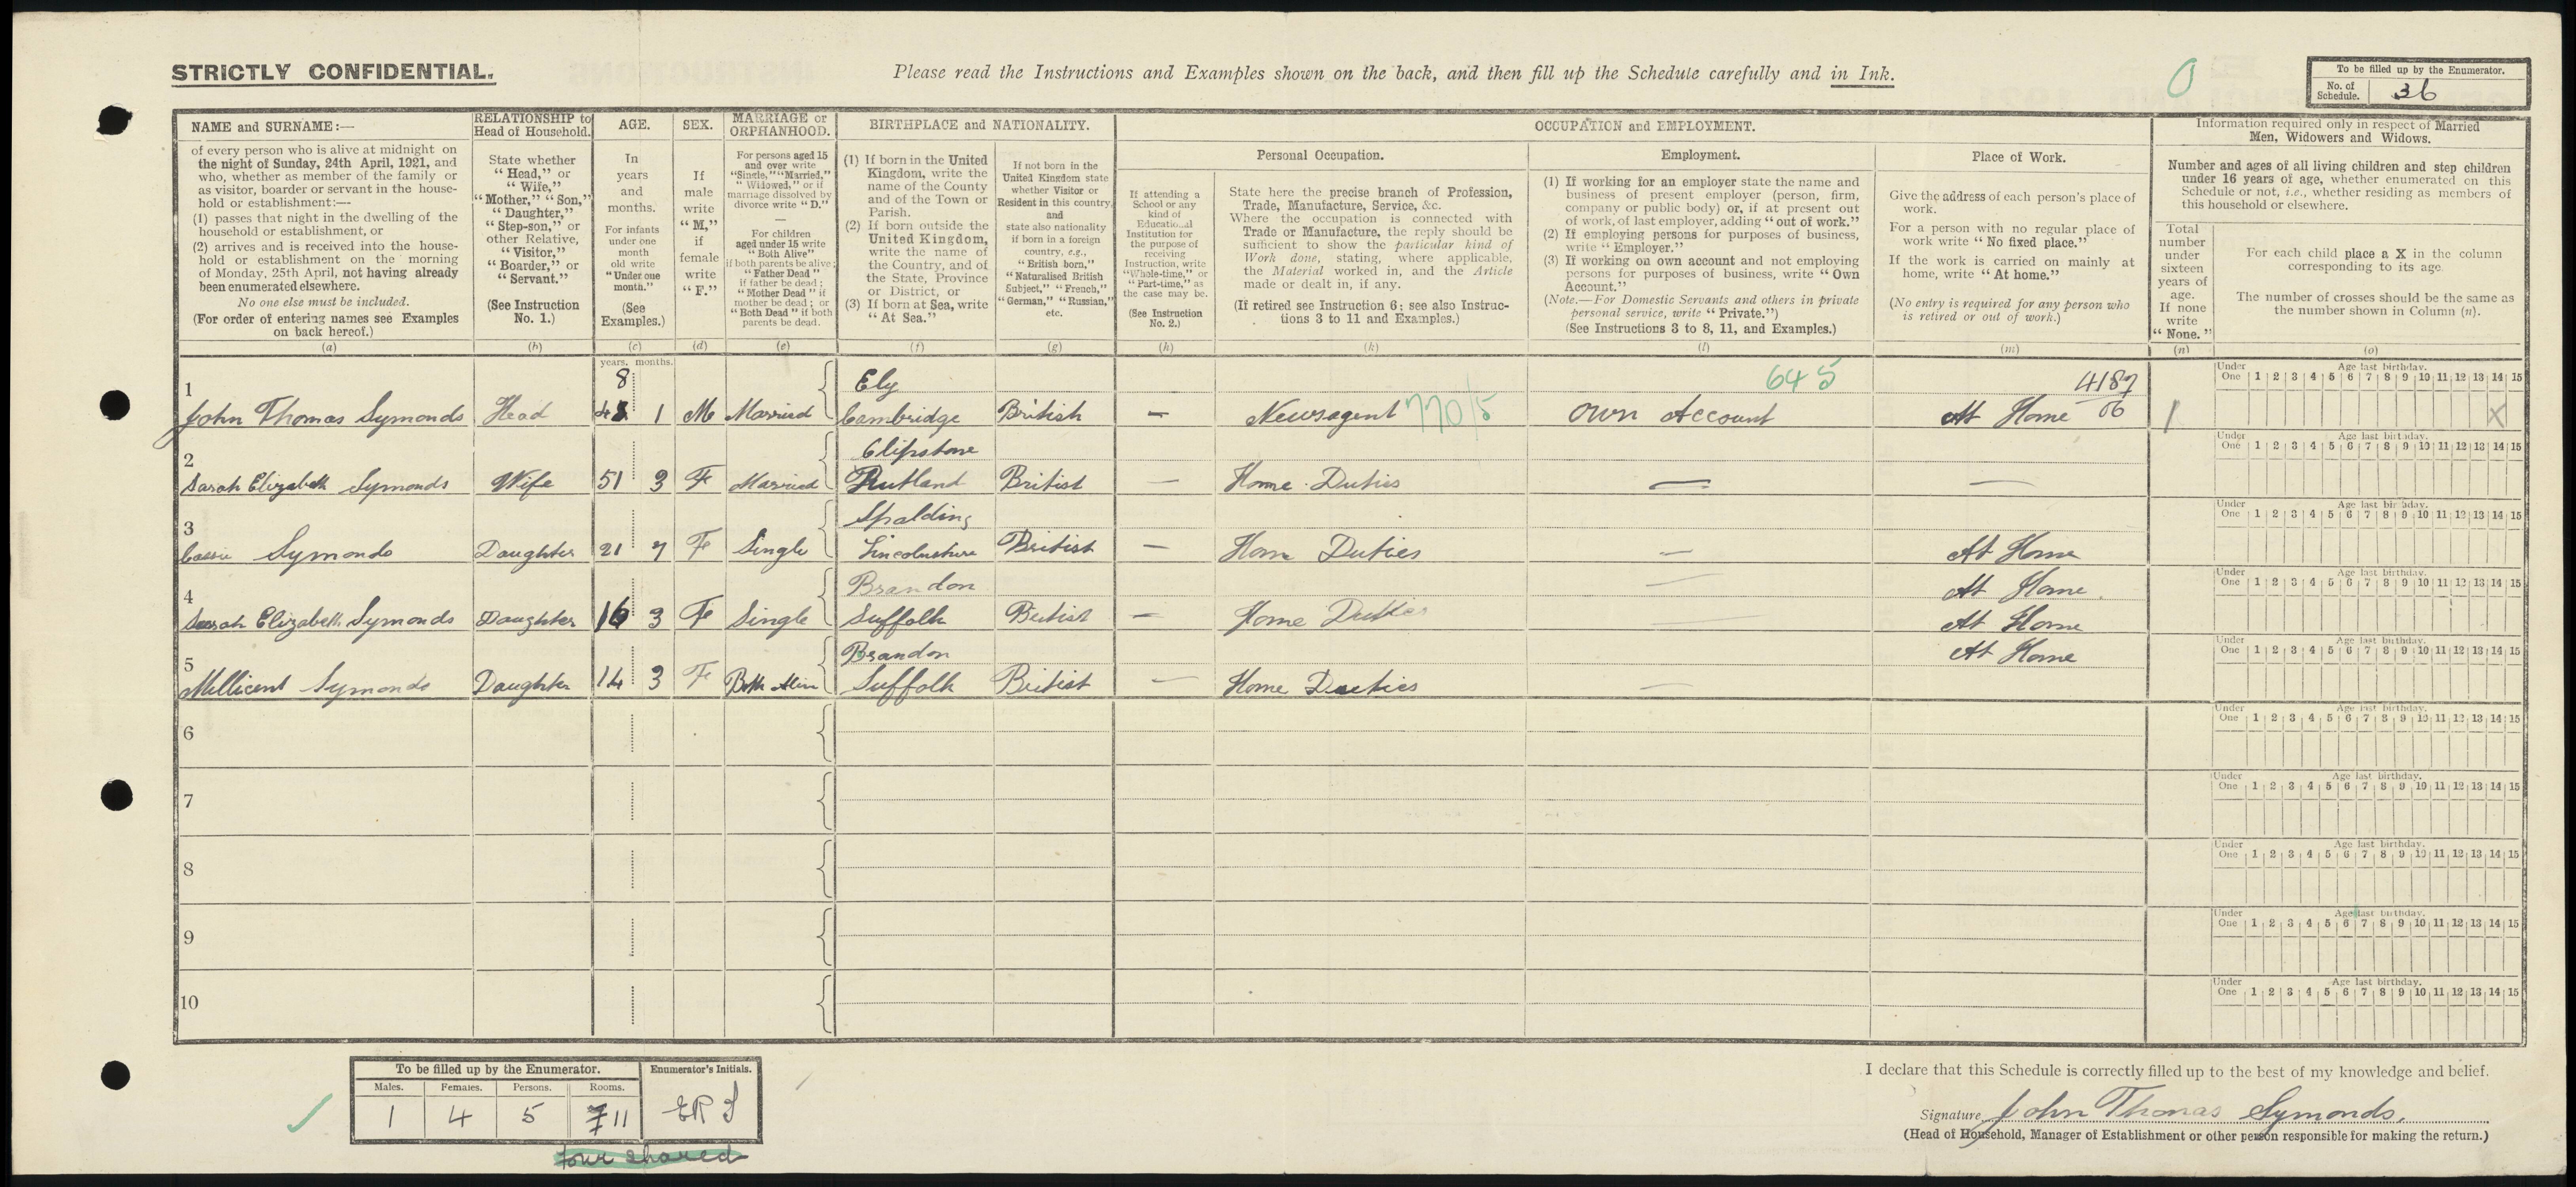 STRICTLY CONFIDENTIAL.
Please read the Instructions and Examples shown on the back, and then fill up the Schedule carefully and in Ink.
0
To be filled up by the Enumerator.
No. of Schedule. 36
NAME and SURNAME:—
of every person who is alive at midnight on
the night of Sunday, 24th April, 1921, and
who, whether as member of the family or
as visitor, boarder or servant in the house-
hold or establishment:—
(1) passes that night in the dwelling of the
household or establishment, or
(2) arrives and is received into the house-
hold or establishment on the morning
of Monday, 25th April, not having already
been enumerated elsewhere.
No one else must be included.
(For order of entering names see Examples
on back hereof.)
(a)
RELATIONSHIP to
Head of Household.
State whether
"Head," or
"Wife,"
"Mother," "Son,"
"Daughter,"
"Step-son," or
other Relative,
"Visitor,"
"Boarder," or
"Servant."
(See Instruction
No. 1.)
(b)
AGE.
In
years
and
months.
For infants
under one
month
old write
"Under one
month."
(See
Examples.)
(c)
SEX.
If
male
write
"M,"
if
female
write
"F."
(d)
MARRIAGE or
ORPHANHOOD.
For persons aged 15
and over write
"Single," "Married,"
"Widowed," or if
marriage dissolved by
divorce write "D."
—
For children
aged under 15 write
"Both Alive"
if both parents be alive;
"Father Dead"
if father be dead;
"Mother Dead" if
mother be dead; or
"Both Dead" if both
parents be dead.
(e)
BIRTHPLACE and NATIONALITY.
(1) If born in the United
Kingdom, write the
name of the County
and of the Town or
Parish.
(2) If born outside the
United Kingdom,
write the name of
the Country, and of
the State, Province
or District, or
(3) If born at Sea, write
"At Sea."
(f)
If not born in the
United Kingdom state
whether Visitor or
Resident in this country,
and
state also nationality
if born in a foreign
country, e.g.,
"British born,"
"Naturalised British
Subject," "French,"
"German," "Russian,"
etc.
(g)
OCCUPATION and EMPLOYMENT.
If attending a
School or any
kind of
Educational
Institution for
the purpose of
receiving
Instruction, write
"Whole-time," or
"Part-time," as
the case may be.
(See Instruction
No. 2.)
(h)
Personal Occupation.
State here the precise branch of Profession,
Trade, Manufacture, Service, &c.
Where the occupation is connected with
Trade or Manufacture, the reply should be
sufficient to show the particular kind of
Work done, stating, where applicable,
the Material worked in, and the Article
made or dealt in, if any.
(If retired see Instruction 6; see also Instruc-
tions 3 to 11 and Examples.)
(k)
Employment.
(1) If working for an employer state the name and
business of present employer (person, firm,
company or public body) or, if at present out
of work, of last employer, adding "out of work."
(2) If employing persons for purposes of business,
write "Employer."
(3) If working on own account and not employing
persons for purposes of business, write "Own
Account."
(Note.—For Domestic Servants and others in private
personal service, write "Private.")
(See Instructions 3 to 8, 11, and Examples.)
(l)
Place of Work.
Give the address of each person's place of
work.
For a person with no regular place of
work write "No fixed place."
If the work is carried on mainly at
home, write "At home."
(No entry is required for any person who
is retired or out of work.)
(m)
Information required only in respect of Married
Men, Widowers and Widows.
Number and ages of all living children and step children
under 16 years of age, whether enumerated on this
Schedule or not, i.e., whether residing as members of
this household or elsewhere.
Total
number
under
sixteen
years of
age.
If none
write
"None."
(n)
For each child place a X in the column
corresponding to its age.
The number of crosses should be the same as
the number shown in Column (n).
(o)
years. months.
1
8
Ely
645
4187
John Thomas Symonds Head 1 M Married Cambridge British — Newsagent 770/5 Own Account At Home 06 1 X
Under One 1 2 3 4 5 6 7 8 9 10 11 12 13 14 15
Age last birthday.
2
Clipstone
Sarah Elizabeth Symonds Wife 51 3 F Married Rutland British — Home Duties — —
Under One 1 2 3 4 5 6 7 8 9 10 11 12 13 14 15
Age last birthday.
3
Spalding
Cassie Symonds Daughter 21 7 F Single Lincolnshire British — Home Duties — At Home
Under One 1 2 3 4 5 6 7 8 9 10 11 12 13 14 15
Age last birthday.
4
Brandon — At Home.
Sarah Elizabeth Symonds Daughter 16 3 F Single Suffolk British — Home Duties — At Home
Under One 1 2 3 4 5 6 7 8 9 10 11 12 13 14 15
Age last birthday.
5
Brandon At Home
Millicent Symonds Daughter 14 3 F Both Alive Suffolk British — Home Duties —
Under One 1 2 3 4 5 6 7 8 9 10 11 12 13 14 15
Age last birthday.
6
Under One 1 2 3 4 5 6 7 8 9 10 11 12 13 14 15
Age last birthday.
7
Under One 1 2 3 4 5 6 7 8 9 10 11 12 13 14 15
Age last birthday.
8
Under One 1 2 3 4 5 6 7 8 9 10 11 12 13 14 15
Age last birthday.
9
Under One 1 2 3 4 5 6 7 8 9 10 11 12 13 14 15
Age last birthday.
10
Under One 1 2 3 4 5 6 7 8 9 10 11 12 13 14 15
Age last birthday.
To be filled up by the Enumerator. Enumerator's Initials.
Males. Females. Persons. Rooms.
1 4 5 7 11
four shared
I declare that this Schedule is correctly filled up to the best of my knowledge and belief.
Signature John Thomas Symonds.
(Head of Household, Manager of Establishment or other person responsible for making the return.)